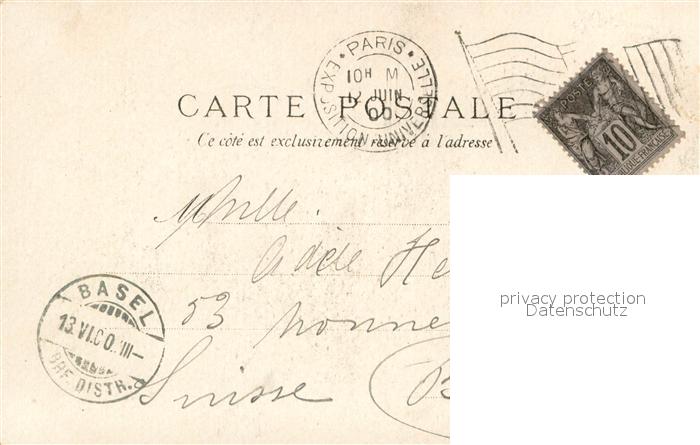 PARIS
EXPOSITION UNIVERSELLE
10H M
12 JUIN
00
CARTE POSTALE
Ce côté est exclusivement réservé à l'adresse
POSTES
10
RÉPUBLIQUE FRANÇAISE
Mlle.
Adèle He
53 Nonne
Suisse B
BASEL
13.VI.00.III-
BRF. DISTR.
privacy protection
Datenschutz